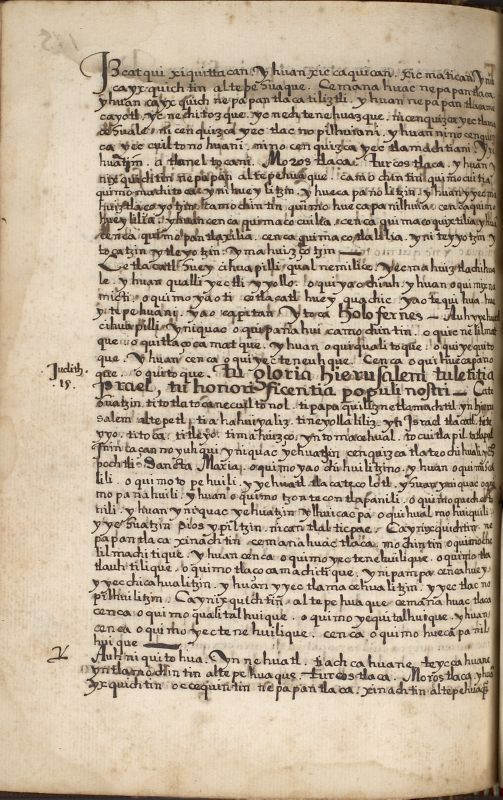 Izcatqui xiquittacan, yhuan xiccaquican. xicmatican yni
cayxquichtin altepehuaque. Cemanahuac nepapantlaca
yhuan cayxquich nepapantlacatiliztli. yhuan nepapantlacame
cayotl. yc nechitozque. yc nechtenehuazque. nicenquizca yectlama
cehuale. nicenquizca yectlacnopilhuani. yhuan ninocenquiz
ca yeccuiltonohuani. ninocenquizca yectlamachtiani. Yn
huatzin. atlaneltocani. Moros tlaca. turcos tlaca. yhuan
nixquichtin nepapan altepehuaque. camochintin quimocuitia
quimomachitoca. yni hueylitzin. yhuecapanolitzin. yhuan yyecma
huiztlacoyotzin. camochintin quimohuecapanilhuia. cenca quimo
hueylilia. yhuan cenca quimocuiltia. cenca quimocquixtilia yhuan
cenca quimopantlaxilia. cenca quimotlalilia. yniteyyotzin y
tocatzin ytleyotzin. ymahuizçotzin
Ce tlacatl huey cihuapilli, qualnemilice. Yecmahuiztlachihua
le. yhuan qualli yectli yyollo. oquiyaochiuh. yhuan oquimix na
micti. oquimoyaoti ce tlacatl huey quachic. yaotequihua. hu
ey tipehuani. yao capitan. Ytoca Holofernes — Auh yehuatl
cihuapilli. yniquac oquipanahui camochintin. oquicnelilmat
que. oquitlaçocamatque. yhuan oquiqualitoque. oquiyequito
que. Yhuan cenca oquiyectenehque. Cenca oquihuecapano
que. oquitoque. Tu gloria hierusalem tu letitia
Judith.
15.
Israel, tu honorificentia populi nostri — Cate
huatzin. titotlatocanecuiltonol. tipapaquiliznetlamachtil. yn hieru
salem altepetl. tiahahuiyaliz. tineyollaliliz. yn Israel tlacatl. tete
yyo. titoca. titleyo. timahuizço, yntomacehual. tocuitlapil. tatlapal
Ihin tacanno yuhqui yniquac yehuatzin cenquizca tlateochihualychpochtli
Sancta Maria. oquimoyaochihuilitzino. yhuan oquimixna
lili. oquimotopehuili. yyehuatl tlacatecolotl. yhuan yniquac oqui
mopanahuili. yhuan oquimotzontecontlapanili. oquimoquechcoto
nili. yhuan yniquac yehuatzin ylhuicacpa oquihualmohuiquili
yyehuatzin Dios ypiltzin. nican tlalticpac. Cayxquichtin ne
papantlaca xinachtin cemanahuac tlaca. mochintin oquimocne
lilmachitique. yhuan cenca oquimoyectenehuilique. oquimotla
tlauhtilique. oquimotlaçocamachitique. ynipampa cenca huey
yyecchicahualitzin. yhuan yyectlamacehualitzin. yyectlacno
pilhuilitzin. Cayxquichtin altepehuaque cemanahuac tlaca
cenca oquimoqualitalhuique. oquimoyequitalhuique. yhuan
cenca oquimoyectenehuilique. cenca oquimohuecapanil
huique
Auh niquitohua. Yn nehuatl. tiachcahuane teycahuane
yntlamochintin altepehuaque turcos tlaca. Moros tlaca. yhuan
yxquichtin occequintin nepapantlaca. xinachtin altepehuaque